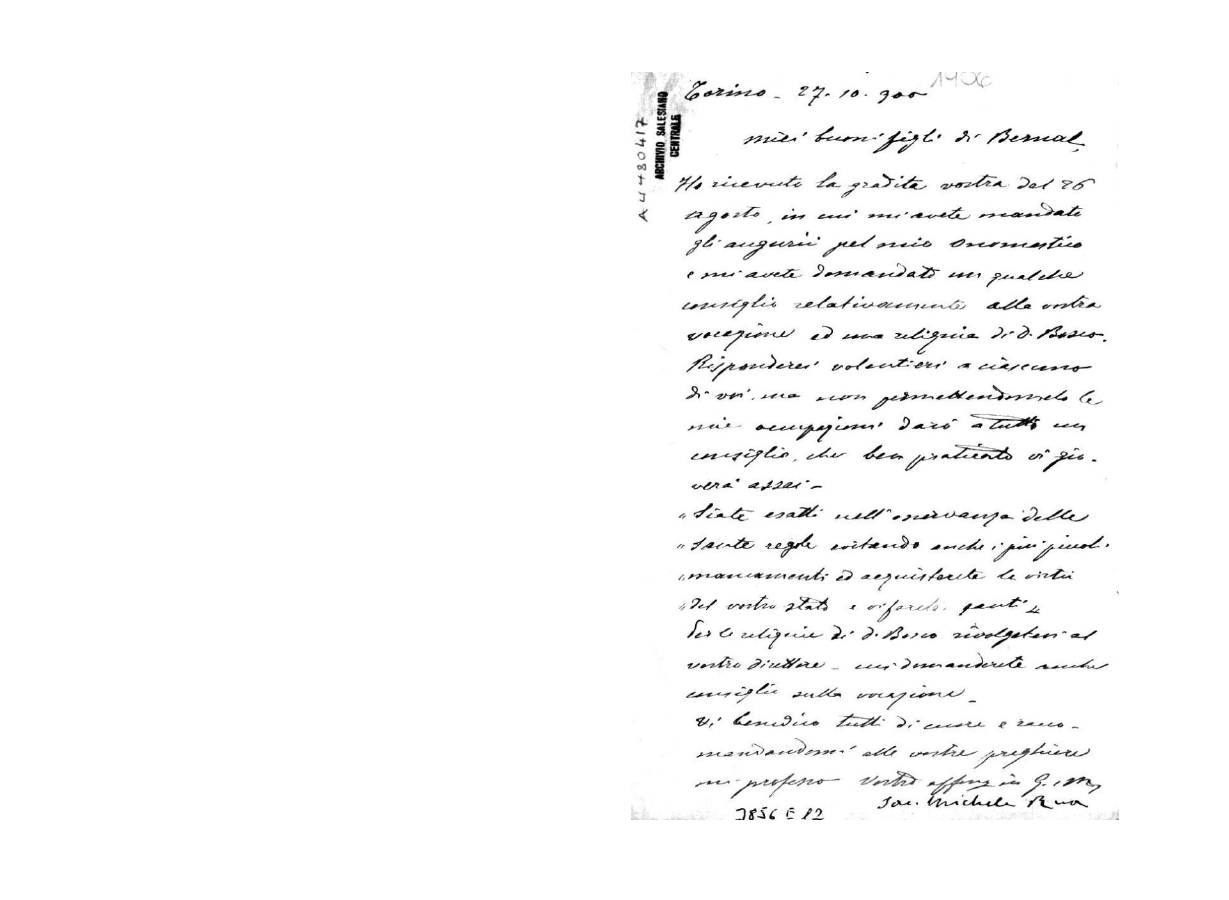 1906
Torino - 27. 10. 900
A4480417
ARCHIVIO SALESIANO
CENTRALE
miei buoni figli di Bernal,
Ho ricevuto la gradita vostra del 26
agosto, in cui mi avete mandato
gli augurii pel mio Onomastico
e mi avete domandato un qualche
consiglio relativamente alla vostra
vocazione ed una reliquia di D. Bosco.
Risponderei volentieri a ciascuno
di voi, ma non permettendomelo le
mie occupazioni darò a tutti un
consiglio, che ben praticato vi gio-
verà assai -
"Siate esatti nell'osservanza delle
"Sante regole evitando anche i più piccoli
"mancamenti ed acquisterete le virtù
"del vostro stato e vi farete santi"
Per le reliquie di d. Bosco rivolgetevi al
vostro direttore - cui domanderete anche
consiglio sulla vocazione -
Vi benedico tutti di cuore e racco-
mandandomi alle vostre preghiere
mi professo Vostro affmo in G. e M.
Sac. Michele Rua
3856 E 12